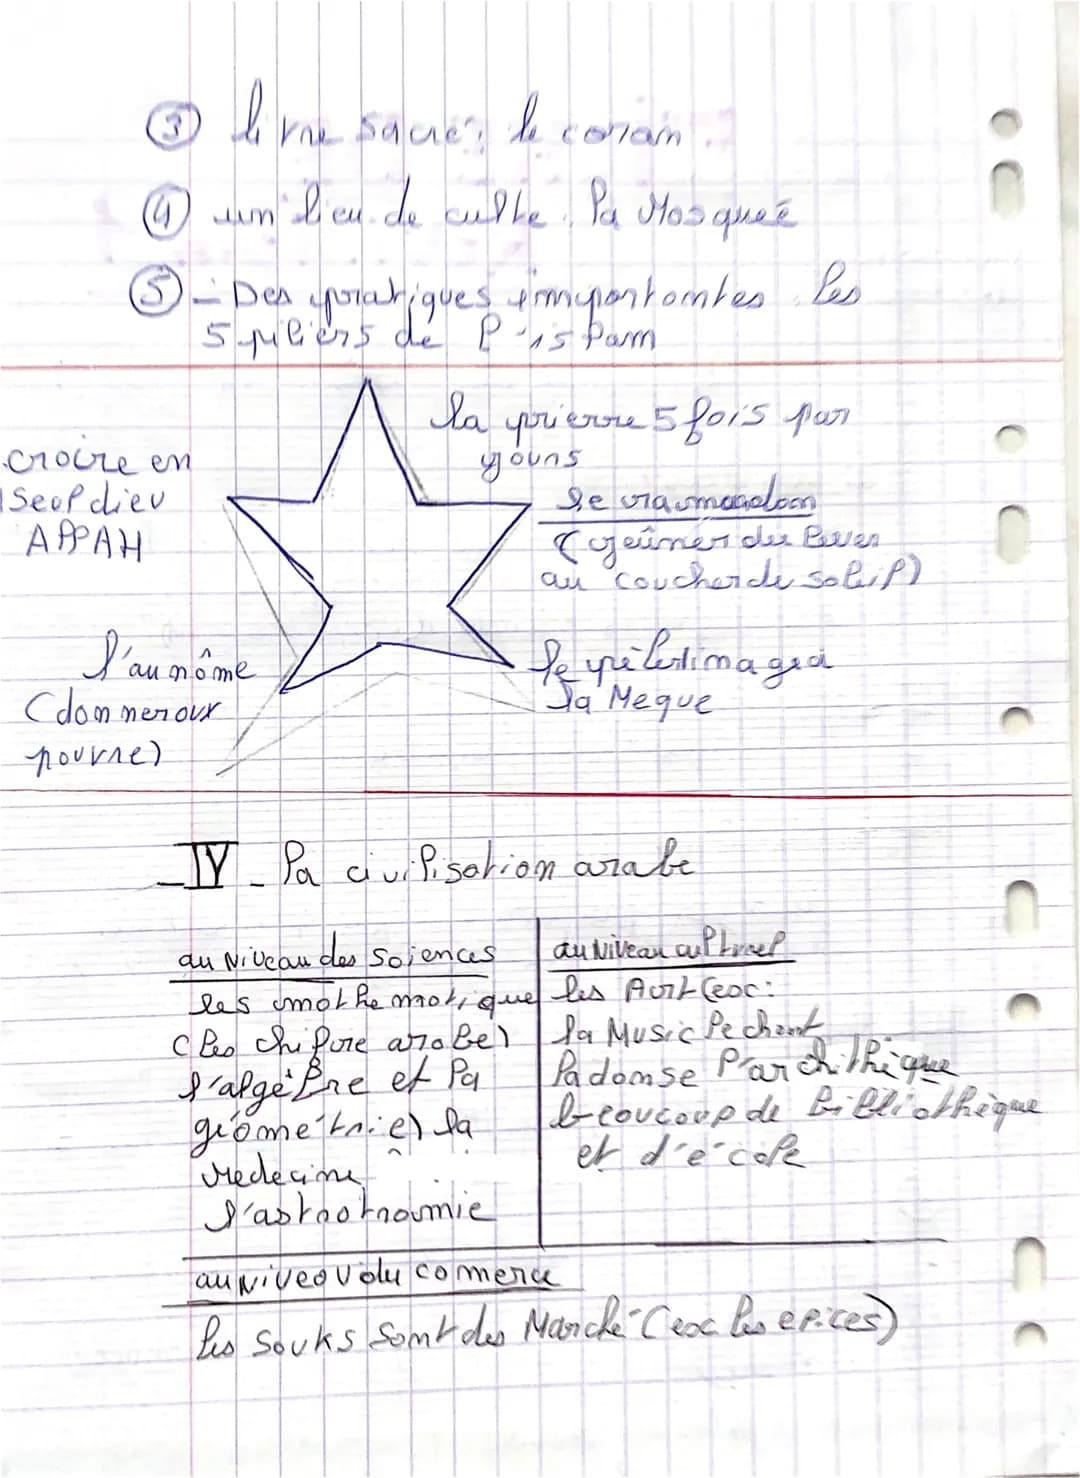 ③ livre sacré: le coran.
④ un lieu de culte: la Mosqueé
⑤ - Des pratiques importantes: les
5 piliers de l'islam
la prierre 5 fois par
jours
croire en
1 Seul dieu
ALLAH
le ramadan
(jeûner du lever
au coucher de soleil)
l'aunôme
(donner oux
pouvre)
le pèlerimage à
la Meque
IV - la civilisation arabe
au Niveau des Sciences
les mathematique
(les chifire arabe)
l'algèbre et la
géométrie) la
medecine
l'astrotroumie
au Niveau culturel
les Art (ex:
la Music le chant
la danse l'archithèque
beaucoup de bibliothèque
et d'école
au Niveau du comerce
les souks sont des Marché (ex les epices)